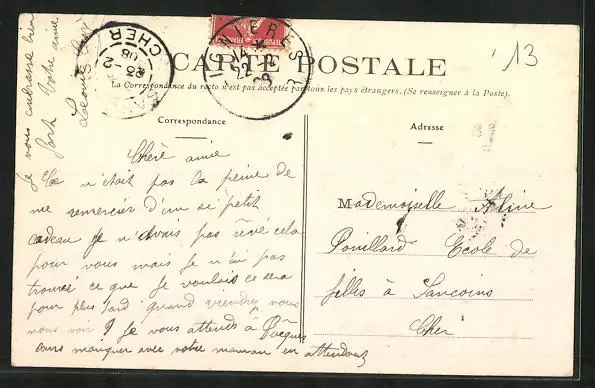 CARTE POSTALE
La Correspondance du recto n'est pas acceptée par tous les pays étrangers. (Se renseigner à la Poste).
Correspondance
Cheré amie
Ce n'était pas la peine de
me remercier d'un si petit
cadeau je n'avais pas rêvé cela
pour vous mais je n'ai pas
trouvé ce que je voulais ce sera
pour plus tard quand viendrez vous
nous voir ? Je vous attends à Pâques
sans manquer avec votre maman en attendant
Je vous embrasse bien
fort Votre amie
Adresse
Mademoiselle Aline
Pouillard Ecole de
filles à Sancoins
Cher
13
CHER
23 -2
08